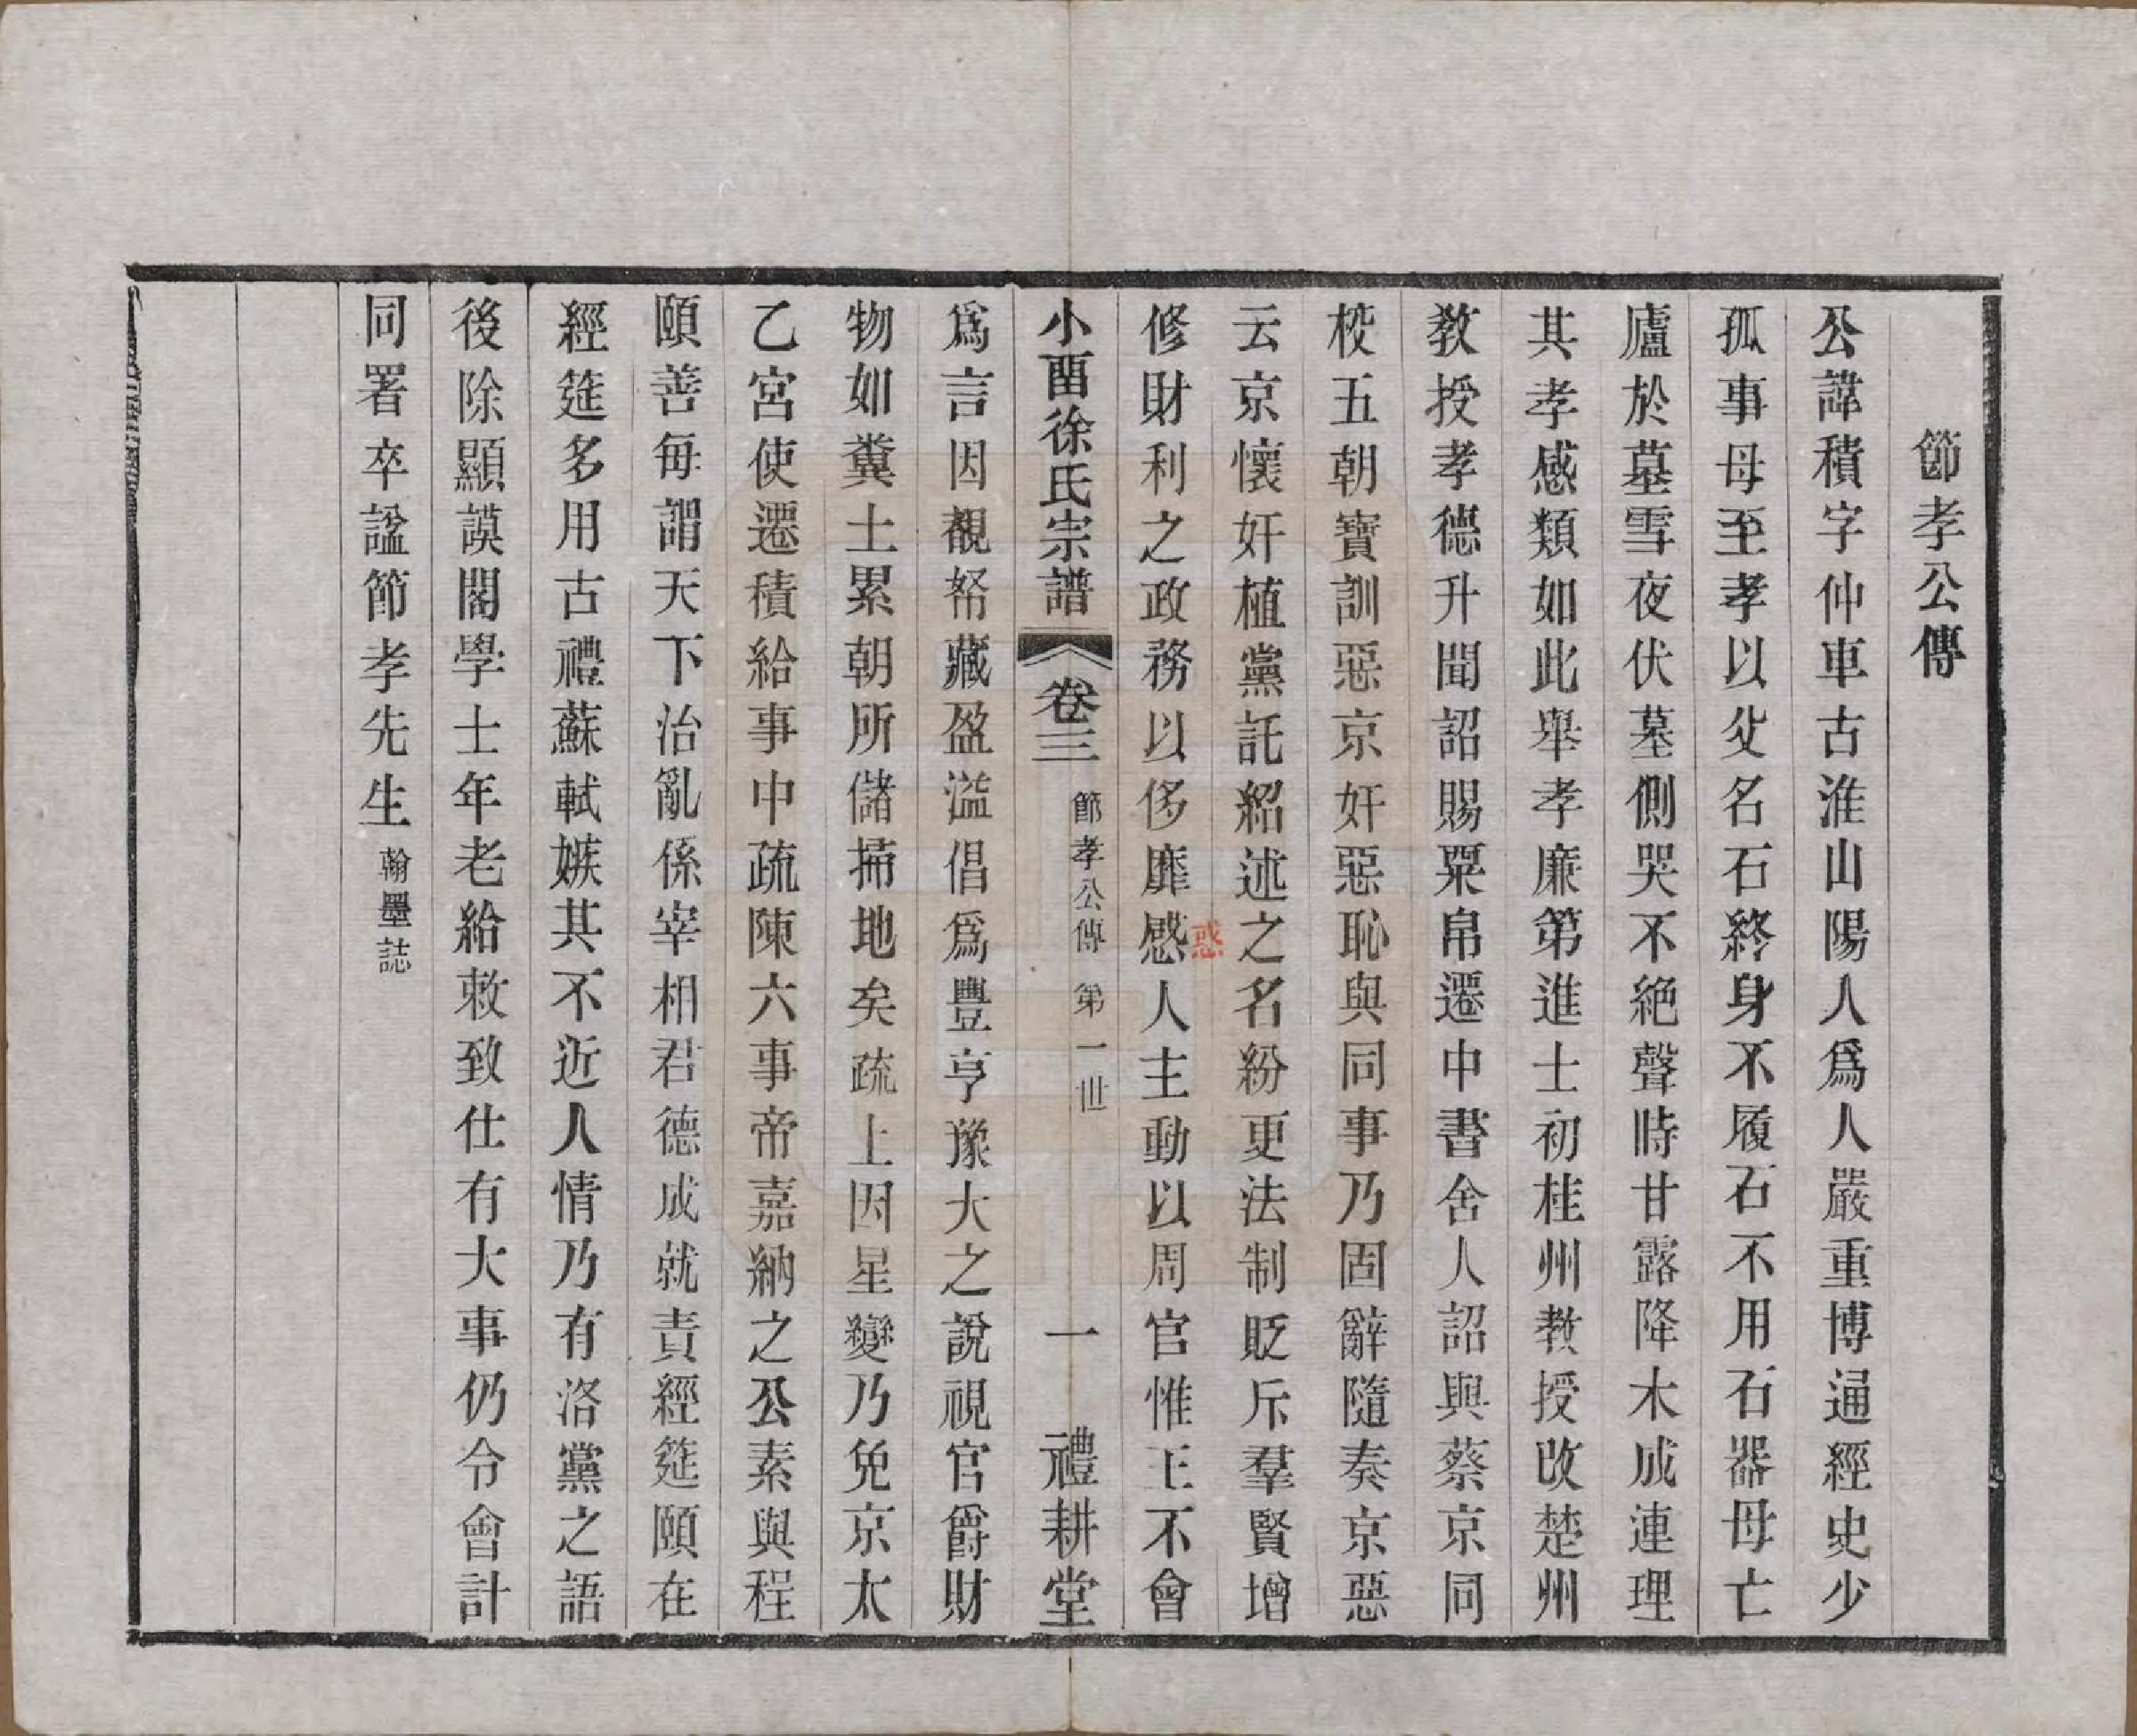 節孝公傳
公諱積字仲車古淮山陽人爲人嚴重博通經史少
孤事母至孝以父名石終身不履石不用石器母亡
廬於墓雪夜伏墓側哭不絕聲時甘露降木成連理
其孝感類如此舉孝廉第進士初桂州教授改楚州
敎授孝德升聞詔賜粟帛遷中書舍人詔與蔡京同
校五朝寶訓惡京奸惡恥與同事乃固辭隨奏京惡
云京懷奸植黨託紹述之名紛更法制貶斥羣賢增
修財利之政務以侈靡感人主動以周官惟王不會
惑
小酉徐氏宗譜 卷三 節孝公傳 第一世 一 禮耕堂
爲言因覩帑藏盈溢倡爲豐亨豫大之說視官爵財
物如糞土累朝所儲掃地矣疏上因星變乃免京太
乙宮使遷積給事中疏陳六事帝嘉納之公素與程
頤善每謂天下治亂係宰相君德成就責經筵頤在
經筵多用古禮蘇軾嫉其不近人情乃有洛黨之語
後除顯謨閣學士年老給敕致仕有大事仍令會計
同署卒諡節孝先生 翰墨誌